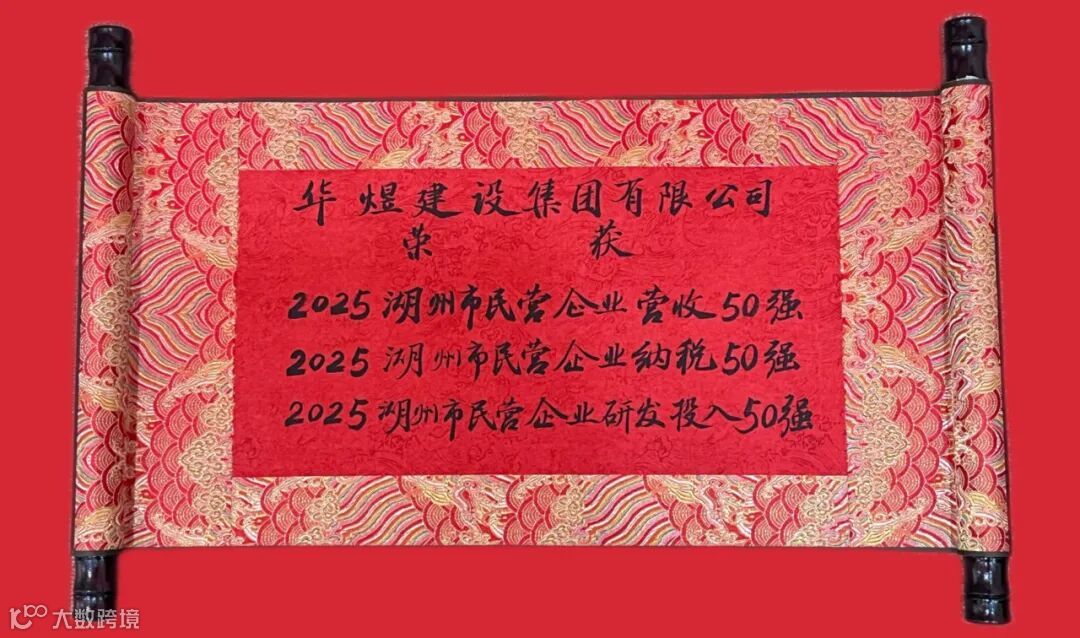 华煜建设集团有限公司
荣获
2025湖州市民营企业营收50强
2025湖州市民营企业纳税50强
2025湖州市民营企业研发投入50强
大数跨境